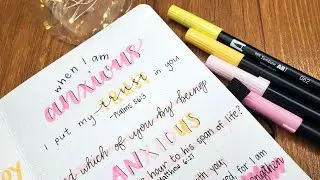 when I am
anxious
I put my trust in you
-Psalms 56:3
and which of you by being
ANXIOUS
hour to his span of life?
Matthew 6:27
with you
for I am
strengthen
Tombow ABT
062